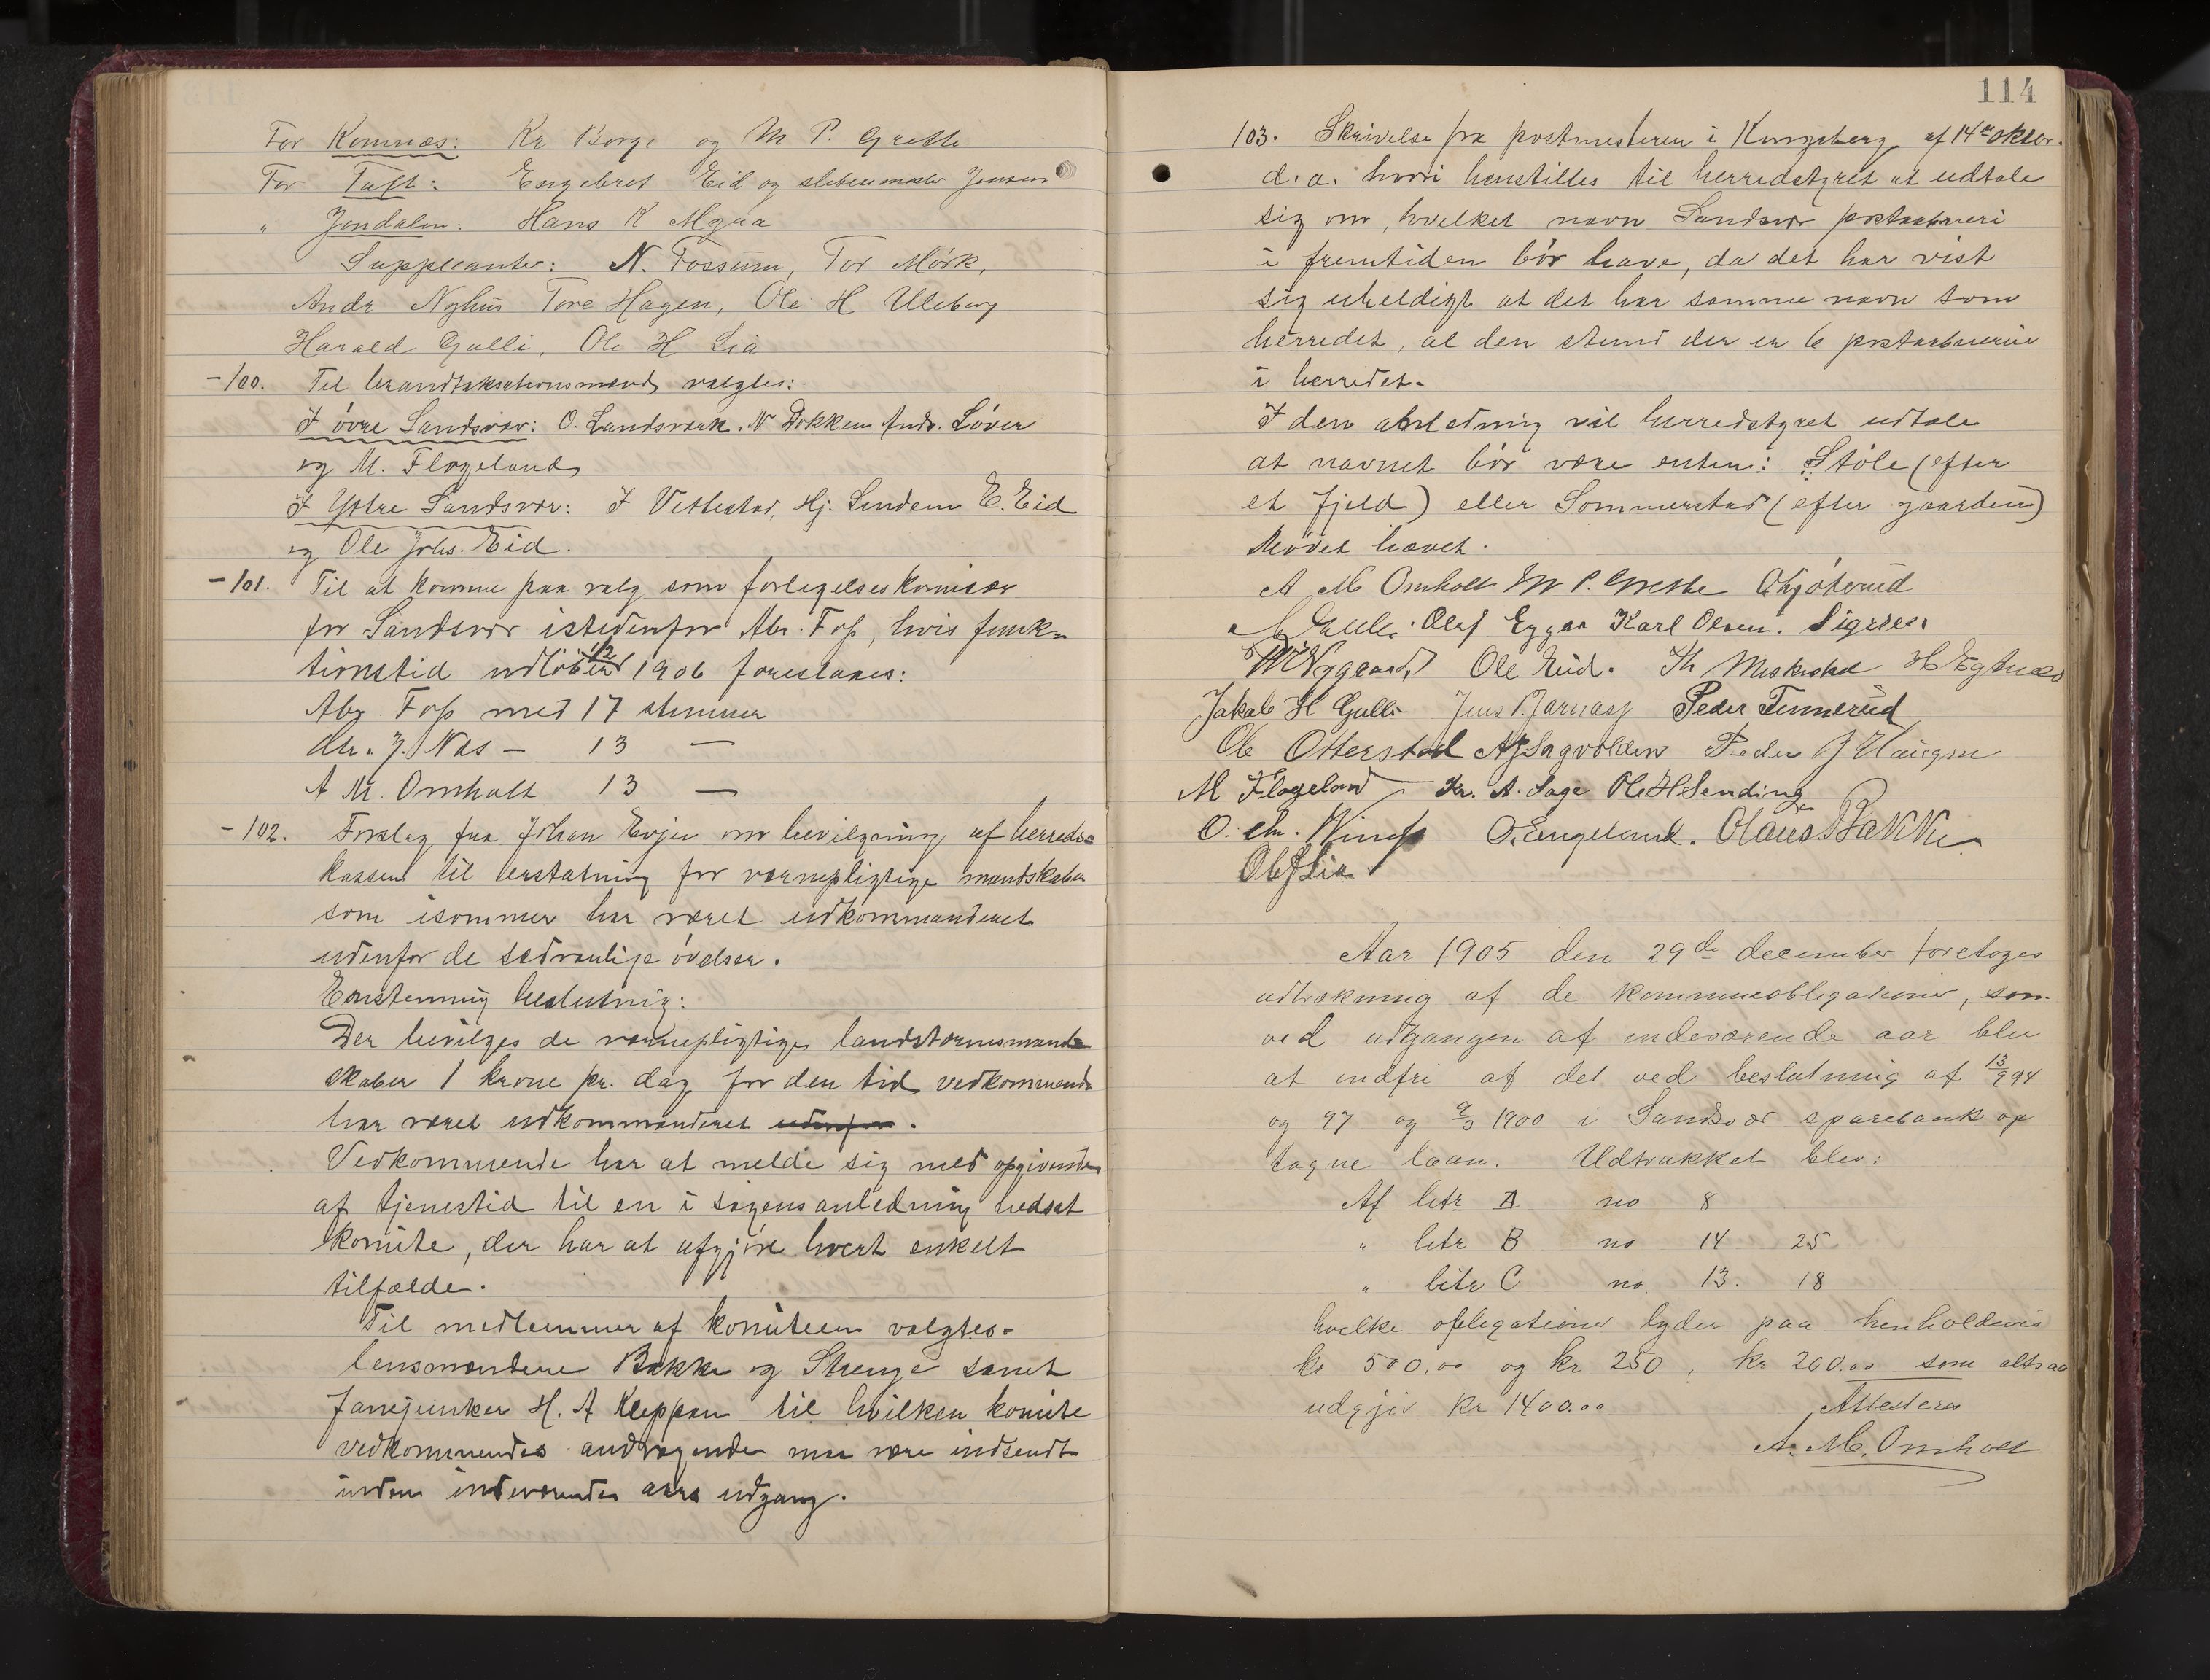 For Komnæs: Kr Borge og M. P. Grette
For Tuft: Engebret Eid og Jensen
" Jondalen: Hans K Moraa
Suppleanter: N. Fossum, Tor Mørk,
Andr Nyhus Tore Hagen, Ole H Uleberg
Harald Gulli, Ole H Lia
-100. Til brandtakstionsmænd valgtes:
I øvre Sandsvær: O. Landsværk. N Dokken Andr. Løver
og M. Flogeland
I Ytre Sandsvær: I Vettestad, Hj. Lindem E. Eid
og Ole Johs. Eid.
-101. Til at komme paa valg som forligelseskomisær
for Sandsvær istedenfor Abr. Foss, hvis funk-
tionstid udløber 1906 foreslaaes:
Abr. Foss med 17 stemmer
Chr. J. Næs - 13 —
A M. Omholt 13 —
-102. Forslag fra Johan Evju om bevilgning af herreds-
kassen til erstatning for vernepligtige mandskaber
som isommer har været udkommanderet
udenfor de sædvanlige øvelser.
Enstemmig beslutning:
Der bevilges de vernepligtige landstormsmand-
skaber 1 krone pr. dag for den tid vedkommende
har været udkommanderet udenfor.
Vedkommende har at melde sig med opgivende
af tjenestid til en i sagens anledning nedsat
komite, der har at afgjøre hvert enkelt
tilfælde.
Til medlemmer af komiteen valgtes
lensmændene Bakke og Strenge samt
Fanejunker H. A Kleppan til hvilken komite
vedkommendes andragende maa være indsendt
inden indeværende aars udgang.
114
103. Skrivelse fra postmesteren i Kongsberg af 14de oktbr.
d.a. hvori henstilles til herredstyret at udtale
sig om, hvilket navn Sandsvær postaabneri
i fremtiden bør have, da det har vist
sig uheldigt at det har samme navn som
herredet, al den stund der er 6 postaabnerier
i herredet.
I den anledning vil herredstyret udtale
at navnet bør være enten: Støle (efter
et fjeld) eller Sommerstad (efter gaarden)
Mødet hævet.
A M Omholt M P. Grette O Kjølerud
Gulli. Olaf Eggar Karl Olsen.
Nyggaard Ole Eid. Th Meskestad H Egtnæs
Jakob H Gulli Jens P. Jarnæss Peder Temmerud
Ole Otterstad A J Sagvolden Peder J Haugen
M Flogeland Kr. A. Sage Ole H Sending
O. Chr. Wings O. Engelund. Olaus Bakke
Ole J Lia
Aar 1905 den 29de december foretoges
udtrækning af de kommuneobligationer, som
ved udgangen af indeværende aar blir
at indfri af det ved beslutning af 13/9 94
og 97 og 9/3 1900 i Sandsvær sparebank op
tagne laan. Udtrukket blev:
Af litr A no 8
" litr B no 14 25
" litr C no. 13. 18
hvilke obligationer lyder paa henholdsvis
kr 500.00 og kr 250, kr 200.00 som altsaa
udgjør kr 1400.00
Attesteres
A. M. Omholt